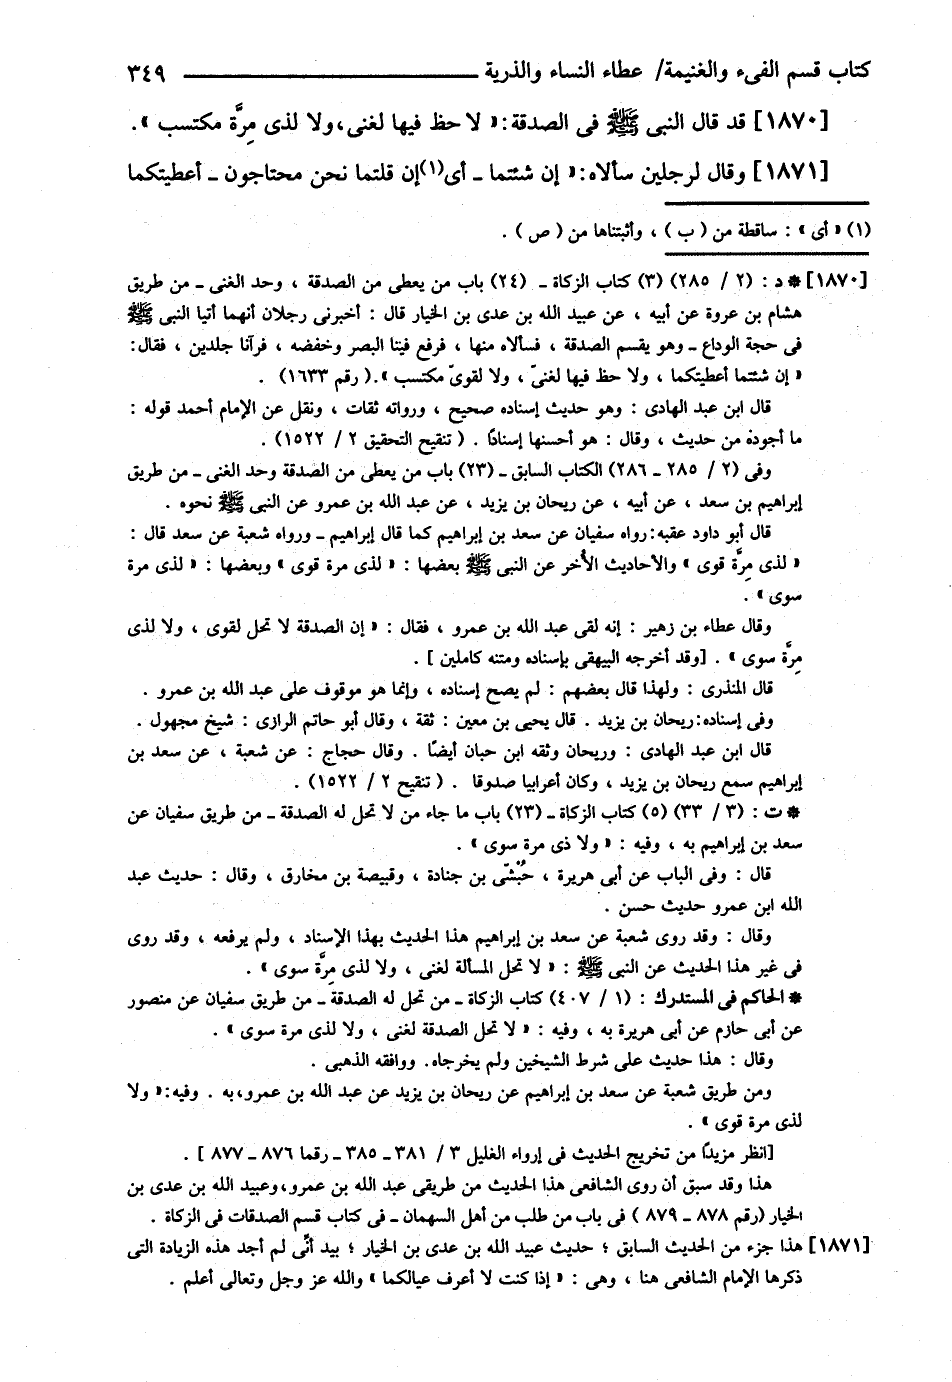 كتاب قسم الفىء والغنيمة/ عطاء النساء والذرية ـــــــــــــــــ ٣٤٩
[١٨٧٠] قد قال النبى ﷺ فى الصدقة: « لا حظ فيها لغنى، ولا لذى مِرَّة مكتسب ».
[١٨٧١] وقال لرجلين سألاه: « إن شئتما ـ أى(١)إن قلتما نحن محتاجون ـ أعطيتكما
(١) « أى » : ساقطة من ( ب ) ، وأثبتناها من ( ص ) .
[١٨٧٠] * د : (٢ / ٢٨٥) (٣) كتاب الزكاة ـ (٢٤) باب من يعطى من الصدقة ، وحد الغنى ـ من طريق
هشام بن عروة عن أبيه ، عن عبيد الله بن عدى بن الخيار قال : أخبرنى رجلان أنهما أتيا النبى ﷺ
فى حجة الوداع ـ وهو يقسم الصدقة ، فسألاه منها ، فرفع فينا البصر وخفضه ، فرآنا جلدين ، فقال:
« إن شئتما أعطيتكما ، ولا حظ فيها لغنىّ ، ولا لقوىّ مكتسب ».( رقم ١٦٣٣) .
قال ابن عبد الهادى : وهو حديث إسناده صحيح ، ورواته ثقات ، ونقل عن الإمام أحمد قوله :
ما أجوده من حديث ، وقال : هو أحسنها إسنادًا . ( تنقيح التحقيق ٢ / ١٥٢٢) .
وفى (٢ / ٢٨٥ ـ ٢٨٦) الكتاب السابق ـ (٢٣) باب من يعطى من الصدقة وحد الغنى ـ من طريق
إبراهيم بن سعد ، عن أبيه ، عن ريحان بن يزيد ، عن عبد الله بن عمرو عن النبى ﷺ نحوه .
قال أبو داود عقبه: رواه سفيان عن سعد بن إبراهيم كما قال إبراهيم ـ ورواه شعبة عن سعد قال :
« لذى مِرَّة قوى » والأحاديث الأُخر عن النبى ﷺ بعضها : « لذى مرة قوى » وبعضها : « لذى مرة
سوى » .
وقال عطاء بن زهير : إنه لقى عبد الله بن عمرو ، فقال : « إن الصدقة لا تحل لقوى ، ولا لذى
مِرَّة سوى » . [وقد أخرجه البيهقى بإسناده ومتنه كاملين ] .
قال المنذرى : ولهذا قال بعضهم : لم يصح إسناده ، وإنما هو موقوف على عبد الله بن عمرو .
وفى إسناده: ريحان بن يزيد . قال يحيى بن معين : ثقة ، وقال أبو حاتم الرازى : شيخ مجهول .
قال ابن عبد الهادى : وريحان وثقه ابن حبان أيضًا . وقال حجاج : عن شعبة ، عن سعد بن
إبراهيم سمع ريحان بن يزيد ، وكان أعرابيا صدوقا . ( تنقيح ٢ / ١٥٢٢) .
* ت : (٣ / ٣٣) (٥) كتاب الزكاة ـ (٢٣) باب ما جاء من لا تحل له الصدقة ـ من طريق سفيان عن
سعد بن إبراهيم به ، وفيه : « ولا ذى مرة سوى » .
قال : وفى الباب عن أبى هريرة ، حُبْشّى بن جنادة ، وقبيصة بن مخارق ، وقال : حديث عبد
الله ابن عمرو حديث حسن .
وقال : وقد روى شعبة عن سعد بن إبراهيم هذا الحديث بهذا الإسناد ، ولم يرفعه ، وقد روى
فى غير هذا الحديث عن النبى ﷺ : « لا تحل المسألة لغنى ، ولا لذى مِرَّة سوى » .
* الحاكم فى المستدرك : (١ / ٤٠٧) كتاب الزكاة ـ من تحل له الصدقة ـ من طريق سفيان عن منصور
عن أبى حازم عن أبى هريرة به ، وفيه : « لا تحل الصدقة لغنى ، ولا لذى مرة سوى » .
وقال : هذا حديث على شرط الشيخين ولم يخرجاه. ووافقه الذهبى .
ومن طريق شعبة عن سعد بن إبراهيم عن ريحان بن يزيد عن عبد الله بن عمرو،به . وفيه: « ولا
لذى مرة قوى » .
[انظر مزيدًا من تخريج الحديث فى إرواء الغليل ٣ / ٣٨١ ـ ٣٨٥ ـ رقما ٨٧٦ ـ ٨٧٧ ] .
هذا وقد سبق أن روى الشافعى هذا الحديث من طريقى عبد الله بن عمرو، وعبيد الله بن عدى بن
الخيار (رقم ٨٧٨ ـ ٨٧٩ ) فى باب من طلب من أهل السهمان ـ فى كتاب قسم الصدقات فى الزكاة .
[١٨٧١] هذا جزء من الحديث السابق ؛ حديث عبيد الله بن عدى بن الخيار ؛ بيد أنّى لم أجد هذه الزيادة التى
ذكرها الإمام الشافعى هنا ، وهى : « إذا كنت لا أعرف عيالكما » والله عز وجل وتعالى أعلم .